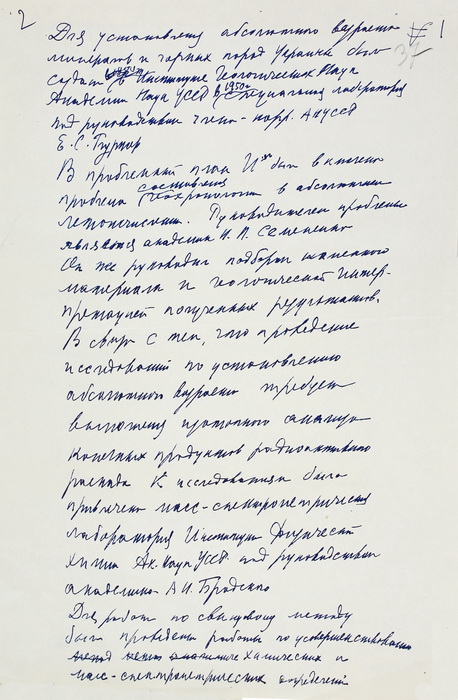 2
1
34
Для установления абсолютного возраста
минералов и горных пород Украины был
создан в Институте Геологических Наук
Академии Наук УССР в 1950 г. специальная лаборатория
под руководством члена-корр. АН УССР
Е. С. Бурксер
В проблемный план И-та был включена
проблема составления геохронологии в абсолютном
летоисчислении. Руководителем проблемы
является академик Н. П. Семененко
Он же руководил подбором каменного
материала и геологической интер-
претацией полученных результатов.
В связи с тем, что проведение
исследований по установлению
абсолютного возраста требует
выполнения изотопного анализа
конечных продуктов радиоактивного
распада к исследованиям была
привлечена масс-спектрометрическая
лаборатория Института Физической
Химии Ак. Наук УССР под руководством
академика А. И. Бродского
Для работ по свинцовому методу
были проведены работы по усовершенствованию
химических и
масс-спектрометрических определений